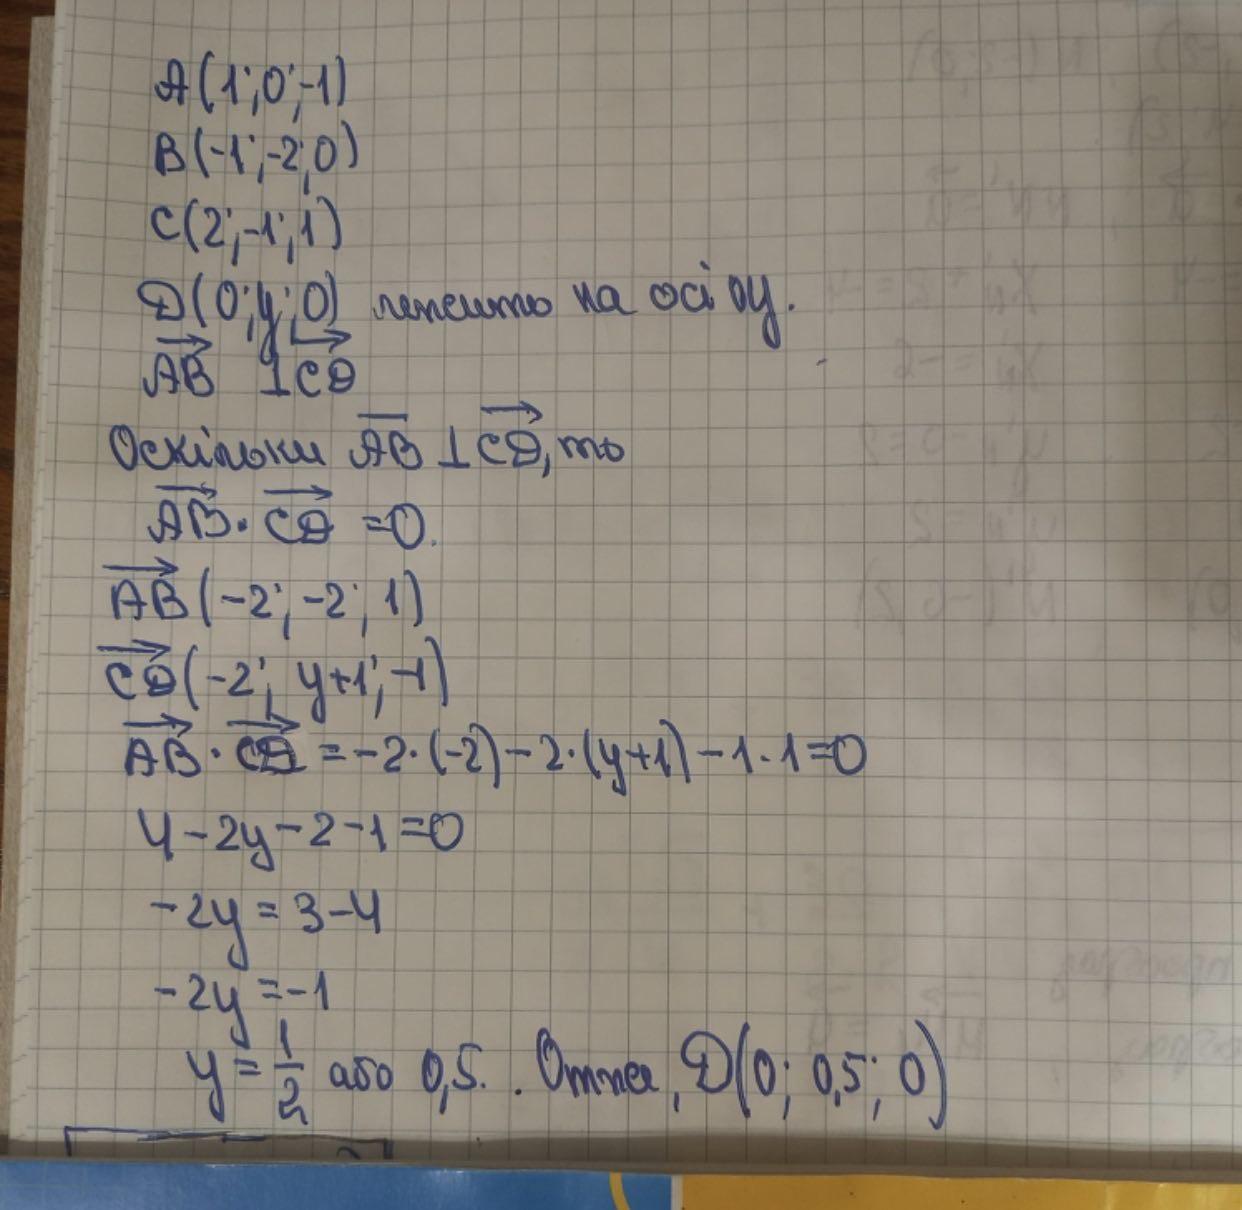 A(1; 0; -1)
B(-1; -2; 0)
C(2; -1; 1)
D(0; y; 0) лежить на осі oy.
AB ⊥ CD
Оскільки AB ⊥ CD, то
AB · CD = 0.
AB (-2; -2; 1)
CD (-2; y+1; -1)
AB · CD = -2 · (-2) - 2 · (y+1) - 1 · 1 = 0
4 - 2y - 2 - 1 = 0
-2y = 3 - 4
-2y = -1
y = 1/2 або 0,5. . Отже, D(0; 0,5; 0)